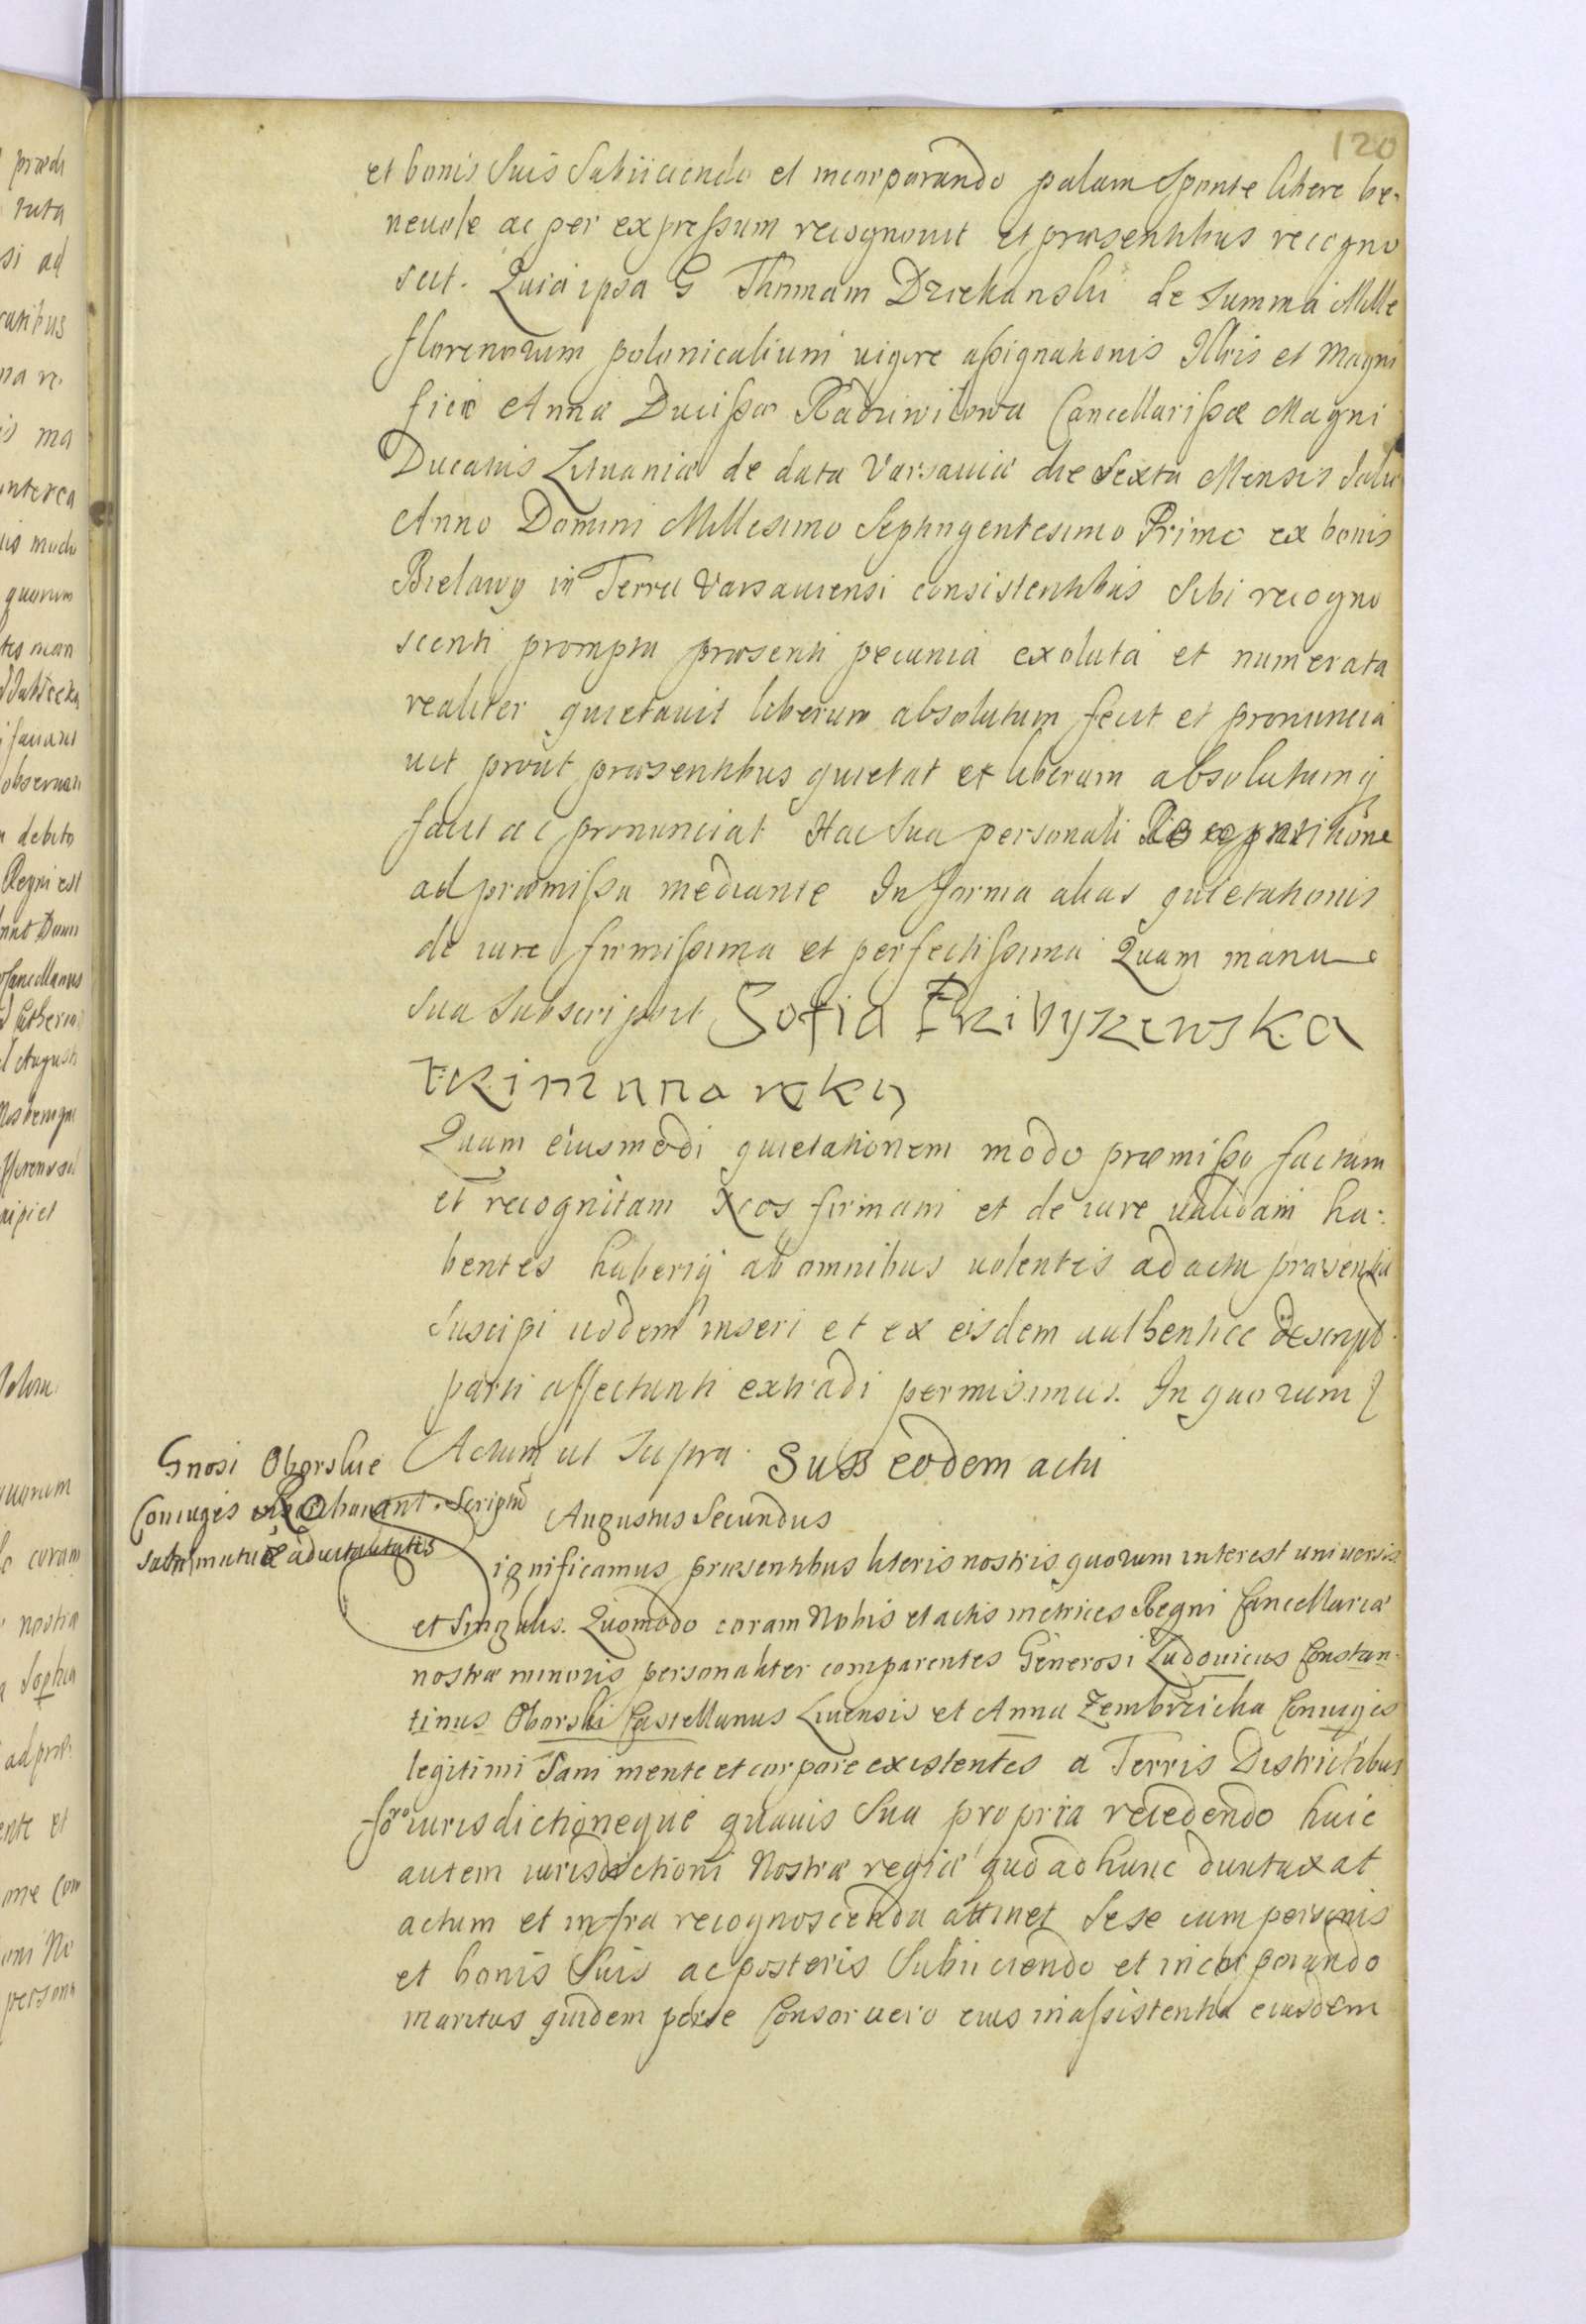 120
et bonis Suis Subiiciendo et incorporando palam Sponte libere be-
neuole ac per expressum recognouit et præsentibus recogno
scit. Quia ipsa G Thomam Dziekanski de Summa Mille
florenorum polonicalium uigore assignationis Illris et Magni
ficæ Annæ Ducissæ Radziwilowa Cancellarissæ Magni
Ducatus Lituaniæ de data Varsauiæ die Sexta Mensis Julii
Anno Domini Millesimo Septingentesimo Primo ex bonis
Bielawy in Terra Varsauiensi consistentibus Sibi recogno
scenti prompta præsenti pecunia exoluta et numerata
realiter quietauit liberum absolutum fecit et pronuncia
uit prout præsentibus quietat et liberum absolutumq
facit ac pronunciat Hac Sua personali Recognitione
ad præmissa mediante In forma alias quietationis
de iure firmissima et perfectissima Quam manu
sua Subscripsit Sofia
Quam eiusmodi quietationem modo præmisso factam
et recognitam Nos firmam et de iure ualidam ha-
bentes haberiq ab omnibus uolentes ad acta præsentia
Suscipi ijsdem inseri et ex eisdem authentice descript
parti affectanti extradi permisimus. In quorum
Actum ut Supra. Sub eodem actu
Gnosi Oborskie
Coniuges Script
mutuæ aduitalitatis
Augustus Secundus
Significamus præsentibus literis nostris quorum interest uniuersis
et Singulis. Quomodo coram Nobis et actis metrices Regni Cancellariæ
nostræ minoris personaliter comparentes Generosi Ludouicus Constan-
tinus Oborski Castellanus Liuensis et Anna Zembrzicka Coniuges
legitimi Sani mente et corpore existentes a Terris Districtibus
foro iurisdictioneque quauis Sua propria recedendo huic
autem iurisdictioni Nostræ regiæ quo ad hunc duntaxat
actum et infra recognoscenda attinet Sese cum personis
et bonis Suis ac posteris Subiiciendo et incorporando
maritus quidem per se Consor uero eius in assistentia eiusdem